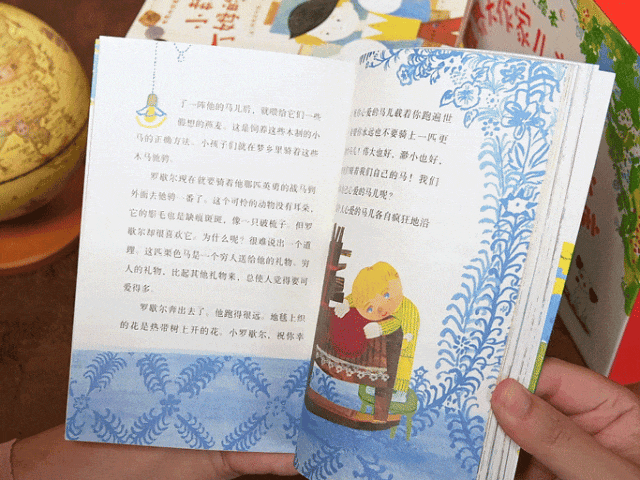 了一阵他的马儿后，就喂给它们一些
假想的燕麦。这是饲养这些木制的小
马的正确方法。小孩子们就在梦乡里骑着这些
木马驰骋。
罗歇尔现在就要骑着他那匹英勇的战马到
外面去驰骋一番了。这个可怜的动物没有耳朵，
它的鬃毛也是缺疵斑斑，像一只破梳子。但罗
歇尔却很喜欢它。为什么呢？很难说出一个道
理。这匹栗色马是一个穷人送给他的礼物。穷
人的礼物，比起其他礼物来，总使人觉得要可
爱得多。
罗歇尔奔出去了。他跑得很远。地毯上织
的花是热带树上开的花。小罗歇尔，祝你幸
心爱的马儿载着你跑遍世
你永远也不要骑上一匹更
伟大也好，渺小也好，
骑着我们自己的马！我们
己心爱的马儿呢？
人心爱的马儿各自疯狂地沿
小